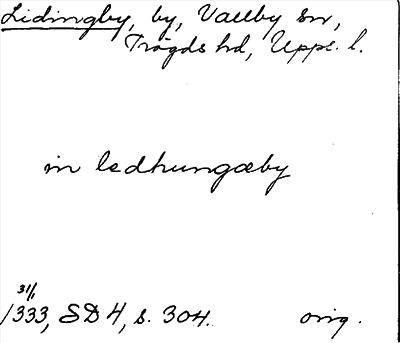 Lidingby, by, Vallby sn,
Trögds hd, Uppl. l.
in ledhungæby
31/1
1333, SD 4, s. 304. orig.